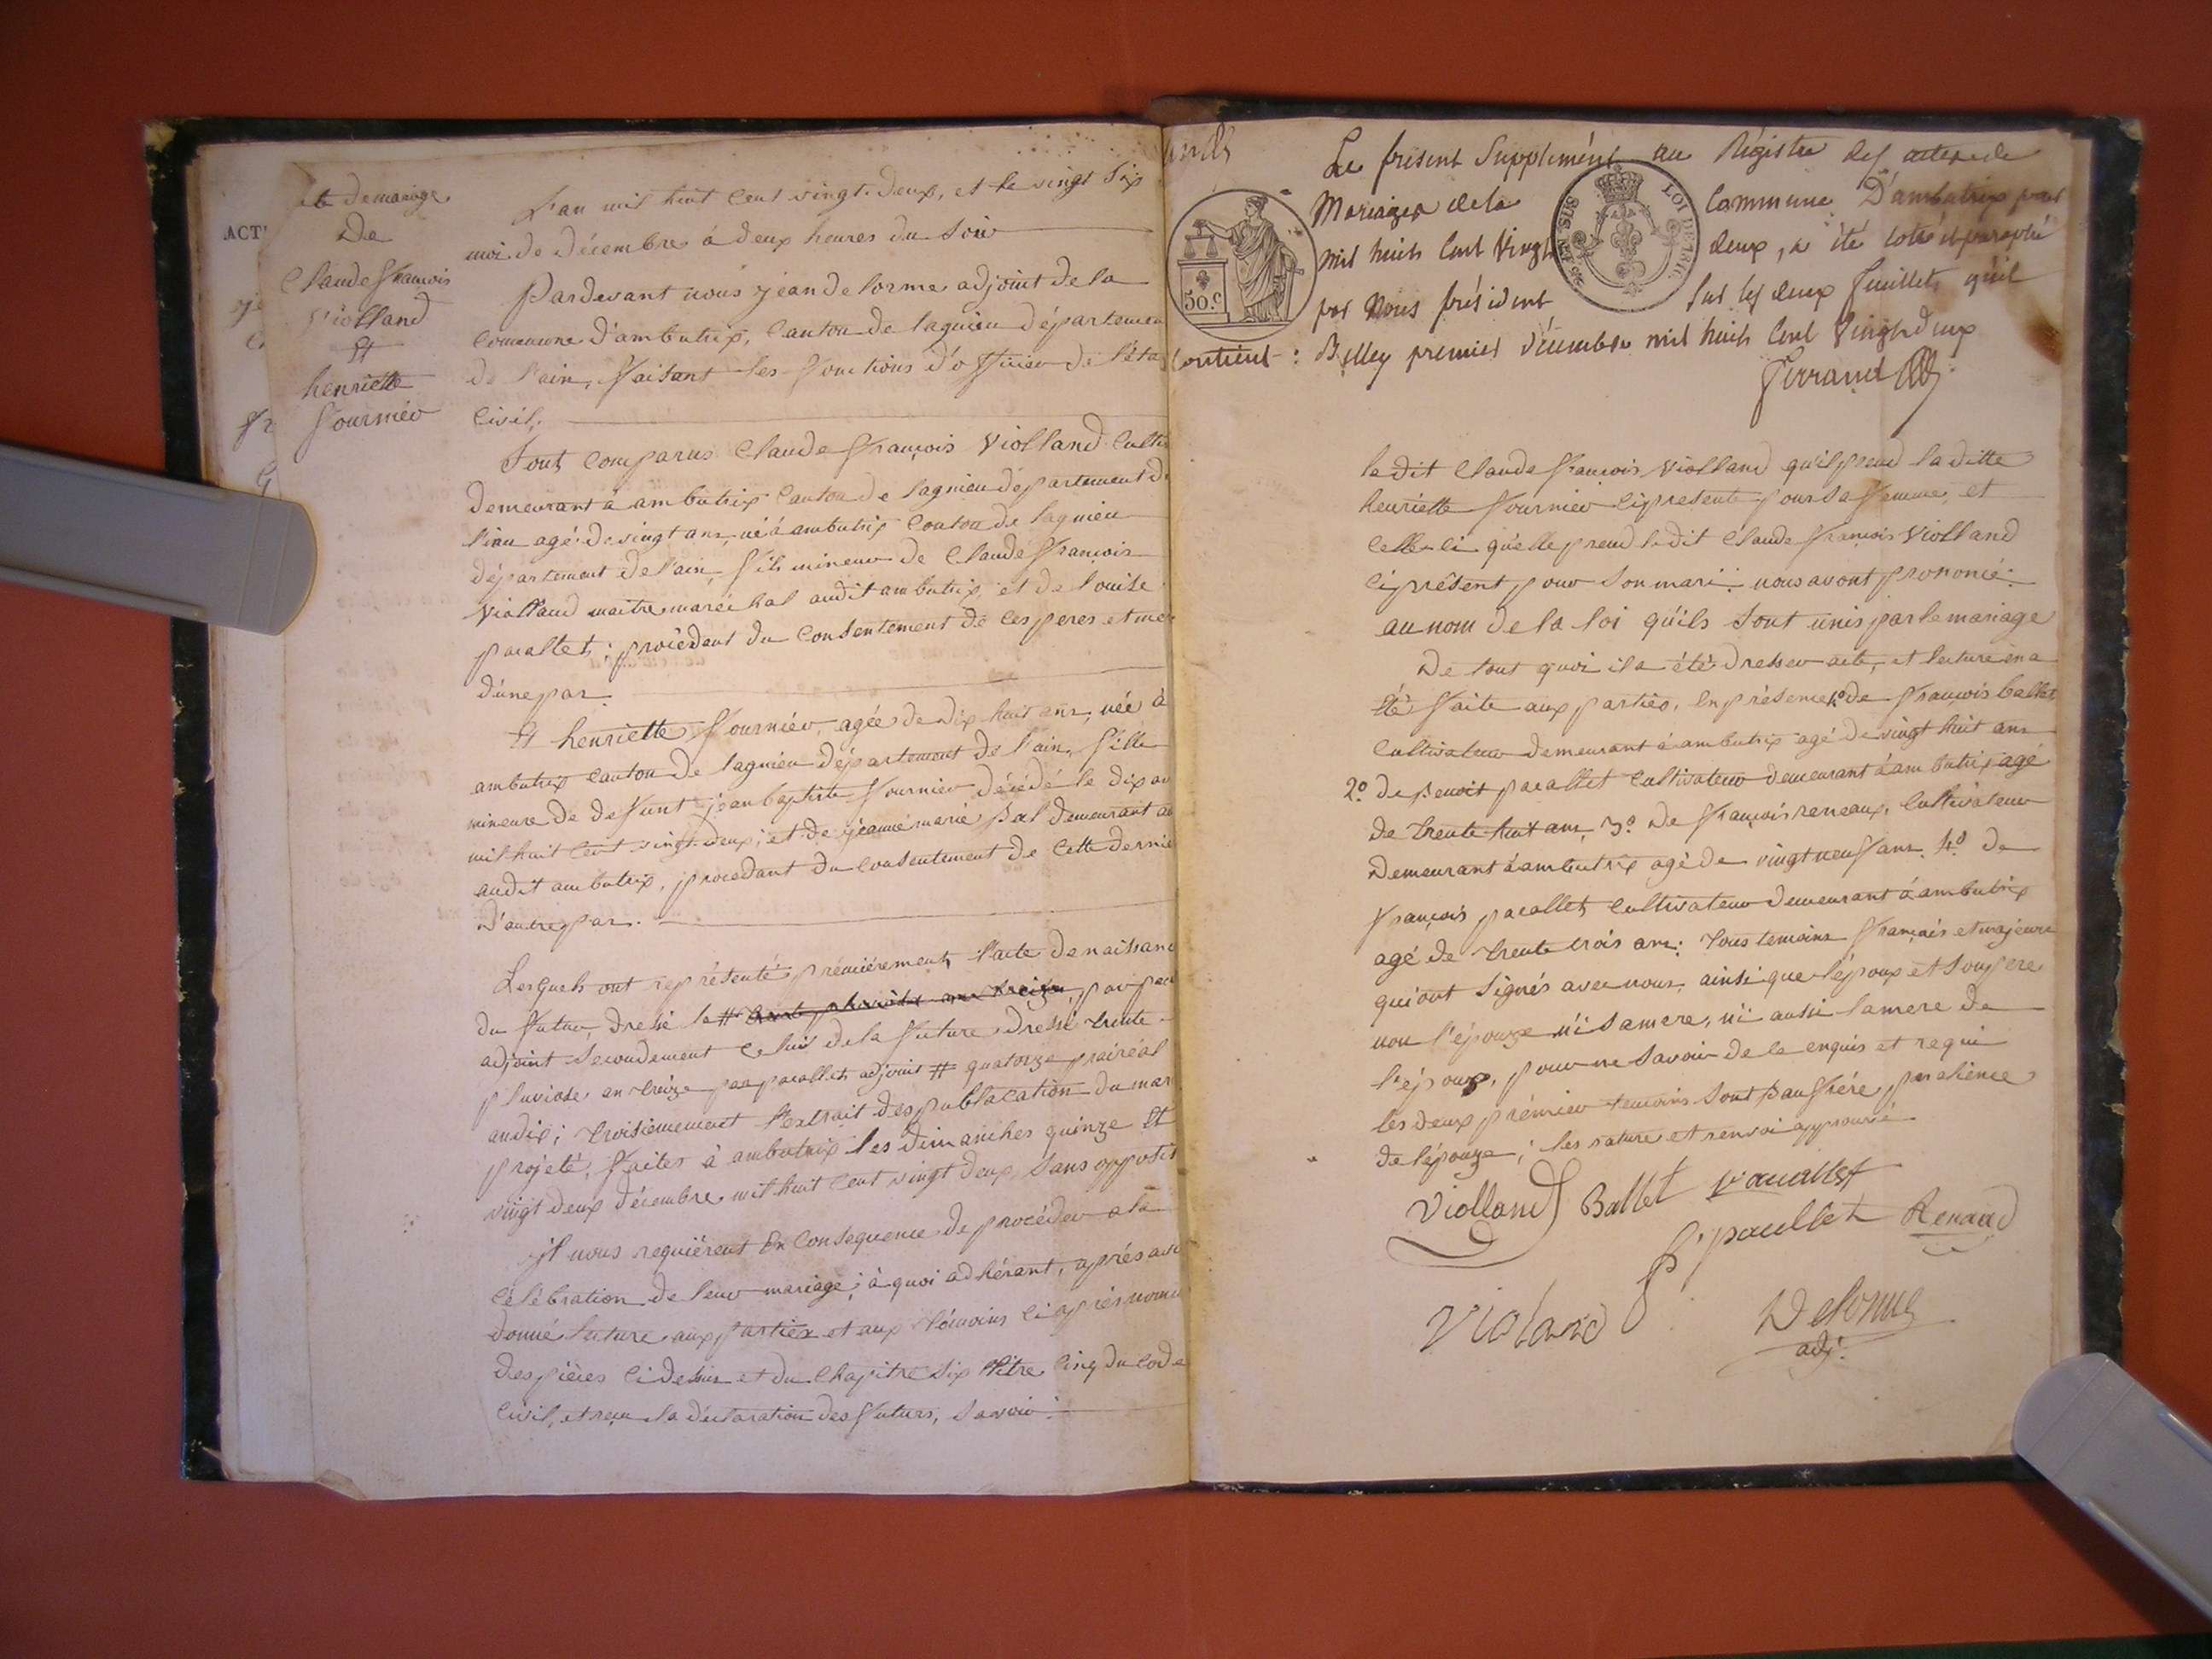 acte de mariage
De
Claude françois
Violland
Et
henriette
fournier
ACT
L'an mil huit Cent vingt-deux, et le vingt six
moi de décembre à deux heures du Soir
Pardevant nous jean delorme adjoint de la
Commune d'ambutrix, Canton de lagnieu département
de l'ain, faisant les fonctions d'officier de l'éta
Civil.
Sont Comparus Claude françois Violland Culti
demeurant à ambutrix Canton de lagnieu département d
l'ain agé de vingt ans, né à ambutrix Conton de lagnieu
département de l'ain, fils mineur de Claude françois
Violland maitre maréchal audit ambutrix, et de louise
pacallet; procédant du Consentement de ces peres et mer
d'une par
Et henriette fournier, agée de dix huit ans, née à
ambutrix canton de lagnieu département de l'ain, fille
mineure de defunt jean baptiste fournier décédé le dix
mil huit cent vingt-deux; et de jeanne marie demeurant
audit ambutrix, procedant du consentement de cette dernie
D'autre par.
Lesquels ont représenté prémiérement, l'acte de naissanc
du futur, dressé le # par
adjoint secondement Celui de la future dressé trente
pluviose an treize par pacallet adjoint # quatorze prairéal
an dix; troisiemement l'extrait des publacation du mar
projeté, faites à ambutrix les dimanches quinze Et
vingt deux décembre mil huit Cent vingt deux, Sans opposit
il nous requiérent En Consequence de procéder a la
Célébration de leur mariage; à quoi adhérant, après avo
donné lecture aux parties et aux témoins ci après nomm
des pièces ci dessus et du Chapitre six titre cinq du code
Civil, et reçu la déclaration des futurs, Savoir:
Le présent Supplément au Régistre des actes de
Mariages de la Commune D'ambutrix pour
mil huit Cent Vingt deux, a été coté et paraphé
par Nous président Sur les deux feuillets qu'il
Contient: Belley premier décembre mil huit Cent Vingt deux
Ferrand
50 C.
LOI DE
le dit Claude françois Violland qu'il prend la ditte
henriette fournier ci presente pour Sa femme, et
Celle-ci qu'elle prend le dit Claude françois Violland
ci présent pour Son mari: nous avont prononcé:
au nom de la loi qu'ils Sont unis par le mariage
De tout quoi il a été dresser acte, et lecture en a
été faite aux parties, En présence 1º de françois ballet
Cultivateur demeurant à ambutrix agé de vingt huit ans
2º de Benoit pacallet Cultivateur demeurant à ambutrix agé
de trente huit ans, 3º De françois reneaux, Cultivateur
demeurant à ambutrix agé de vingt neuf ans. 4º de
françois pacallet Cultivateur demeurant à ambutrix
agé de trente trois ans: tous temoins français et majeurs
qui ont Signés avec nous, ainsi que l'époux et son pere
non l'épouze ni Sa mere, ni aussi la mere de
l'époux, pour ne Savoir de ce enquis et requi
les deux prémier temoins Sont par alience
de l'épouze; les rature et renvoi approuvé
Violland Ballet Pacallet
P. pacallet Renaud
Violand Delorme
adj.